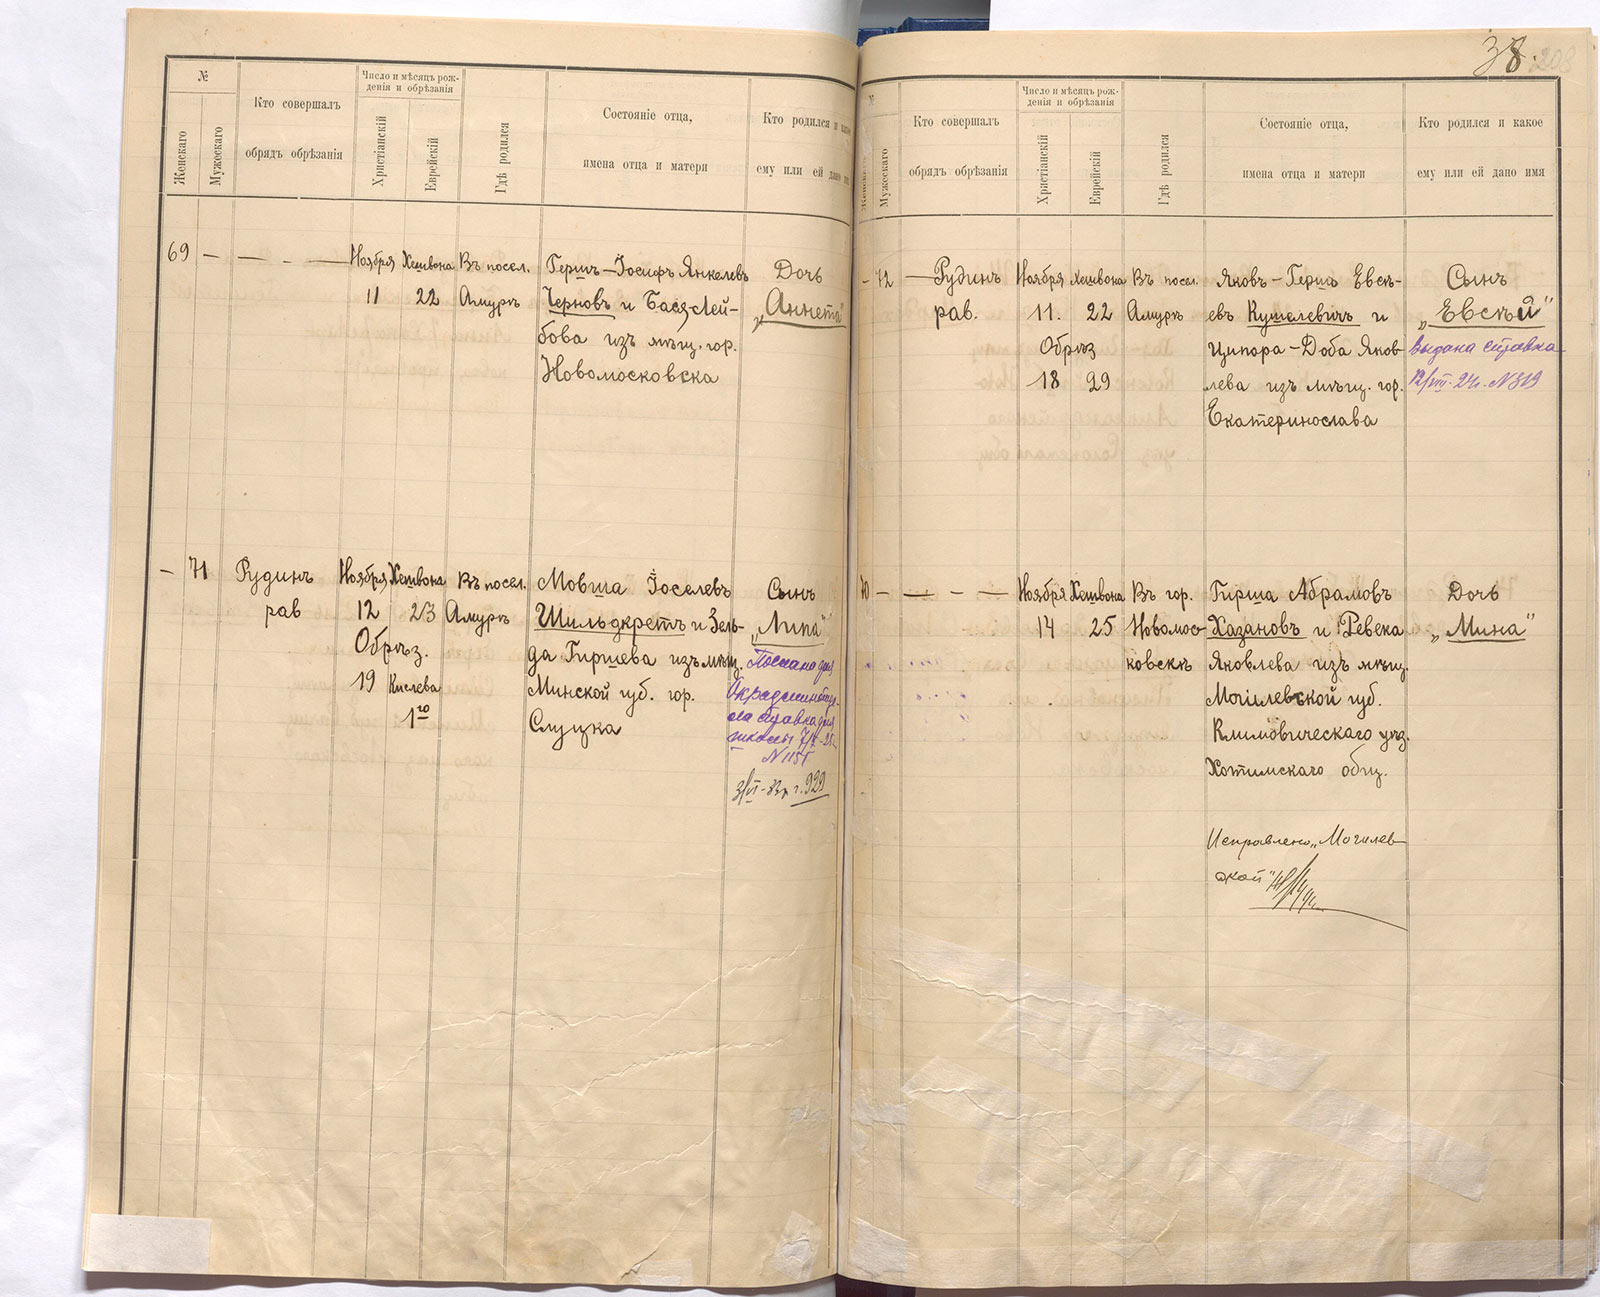 38.
208
№
Женскаго
Мужескаго
Кто совершалъ
обрядъ обрѣзанія
Число и мѣсяцъ рож-
денія и обрѣзанія
Христіанскій
Еврейскій
Гдѣ родился
Состояніе отца,
имена отца и матери
Кто родился и какое
ему или ей дано имя
69 — — — —
Ноября Хешвона Въ посел.
11 22 Амурѣ
Гершъ-Іосифъ Янкелевъ
Черновъ и Бася-Лей-
бова изъ мѣщ. гор.
Новомосковска
Дочь
„Аннета"
— 71 Рудинъ
рав
Ноября Хешвона Въ посел.
12 23 Амурѣ
Обрѣз.
19 Кислева
1го
Мовша Іоселевъ
Шильдкретъ и Зель-
да Гиршева изъ мѣщ.
Минской губ. гор.
Слуцка
Сынъ
„Липа"
Послана для
справка для
школы
№
№
Женскаго
Мужескаго
Кто совершалъ
обрядъ обрѣзанія
Число и мѣсяцъ рож-
денія и обрѣзанія
Христіанскій
Еврейскій
Гдѣ родился
Состояніе отца,
имена отца и матери
Кто родился и какое
ему или ей дано имя
— 72 — Рудинъ
рав.
Ноября Хешвона Въ посел.
11. 22 Амурѣ
Обрѣз
18 29
Яковъ-Гершъ Евсѣ-
евъ Кушелевичъ и
Ципора-Доба Яков-
лева изъ мѣщ. гор.
Екатеринослава
Сынъ
„Евсѣй"
Выдана справка
12/VIII-24г. N 319
70 — — — —
Ноября Хешвона Въ гор.
14 25 Новомос-
ковскѣ
Гирша Абрамовъ
Хазановъ и Ревека
Яковлева изъ мѣщ.
Могилевской губ.
Климовическаго уѣз.
Хотимскаго общ.
Дочь
„Мина"
Исправлено „Могилев-
ской"